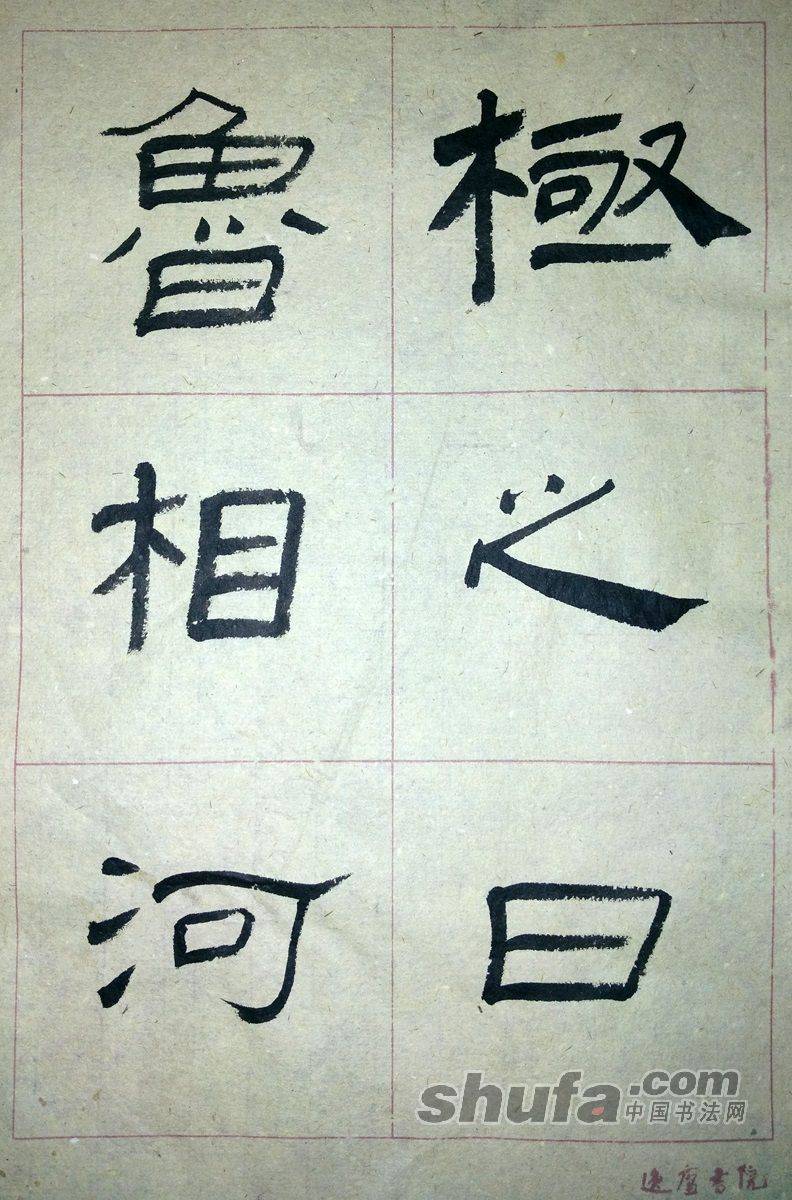 極之日
魯相河
shufa.com
中国书法网